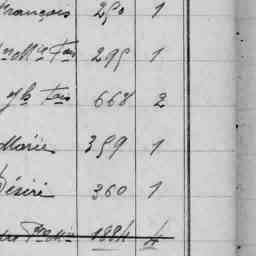 François 250 1
Mie Fois 295 1
Jh Fois 668 2
Marie 359 1
Désiré 360 1
1884 4